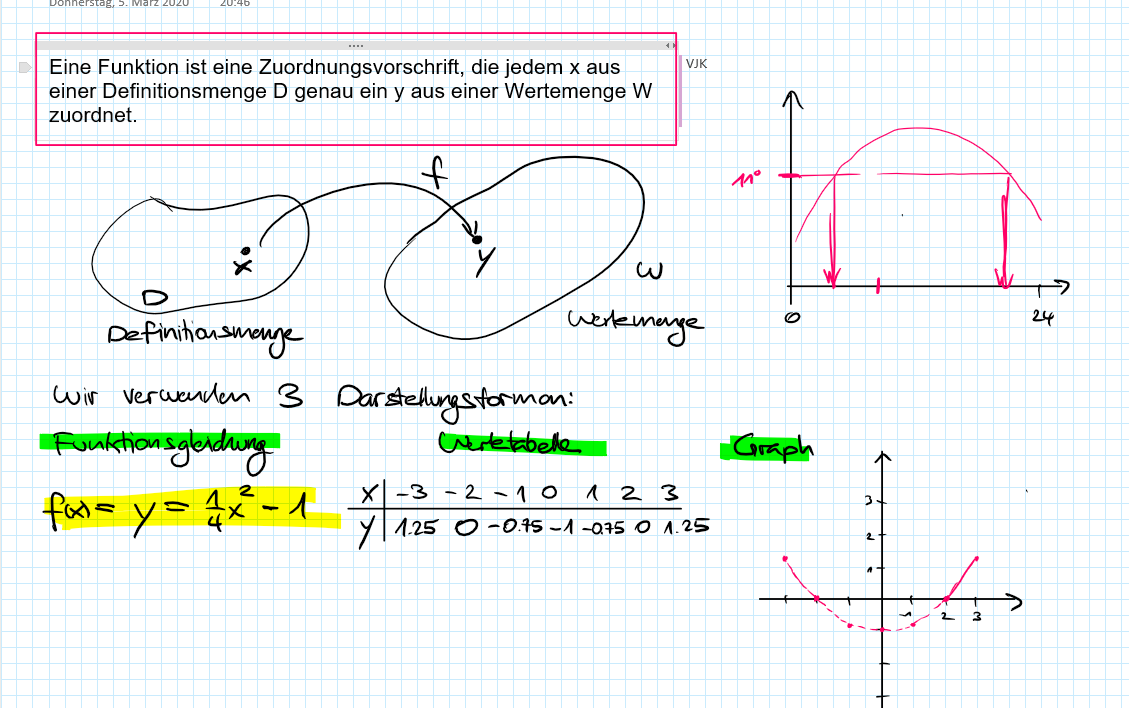 Donnerstag, 5. März 2020 20:46
Eine Funktion ist eine Zuordnungsvorschrift, die jedem x aus
einer Definitionsmenge D genau ein y aus einer Wertemenge W
zuordnet.
VJK
f
x
y
D
W
Definitionsmenge
Wertemenge
11°
0
24
Wir verwenden 3 Darstellungsformen:
Funktionsgleichung Wertetabelle Graph
f(x) = y = 1/4 x² - 1
x | -3 -2 -1 0 1 2 3
y | 1.25 0 -0.75 -1 -0.75 0 1.25
3
2
1
1 2 3